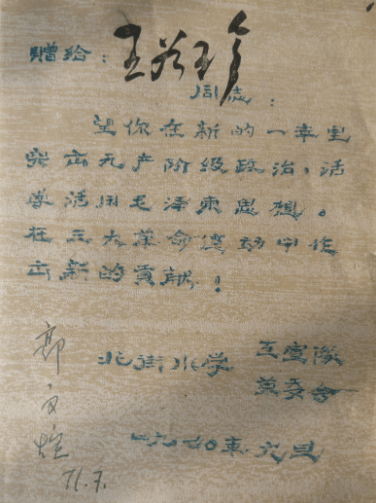 赠给：王珍
同志：
望你在新的一年里
突出无产阶级政治，活
学活用毛泽东思想。
在三大革命运动中作
出新的贡献！
北街小学 工宣队
革委会
一九七〇年元旦
郭文
71.7.